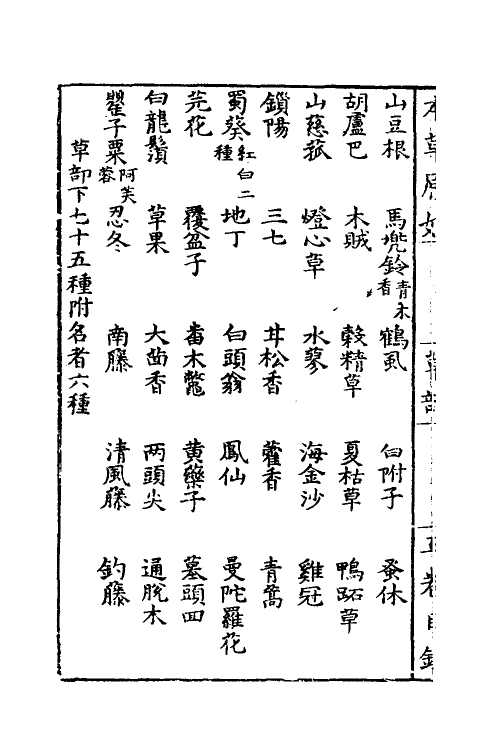 山豆根　馬兜鈴青木香　鶴虱　白附子　蚤休
胡盧巴　木賊　穀精草　夏枯草　鴨跖草
山慈菰　燈心草　水蓼　海金沙　雞冠
鎖陽　三七　甘松香　藿香　青蒿
蜀葵紅白二種　地丁　白頭翁　鳳仙　曼陀羅花
芫花　覆盆子　番木鱉　黃藥子　墓頭回
白龍鬚　草果　大茴香　兩頭尖　通脫木
罌子粟阿芙蓉　忍冬　南藤　清風藤　釣藤
草部下七十五種附名者六種